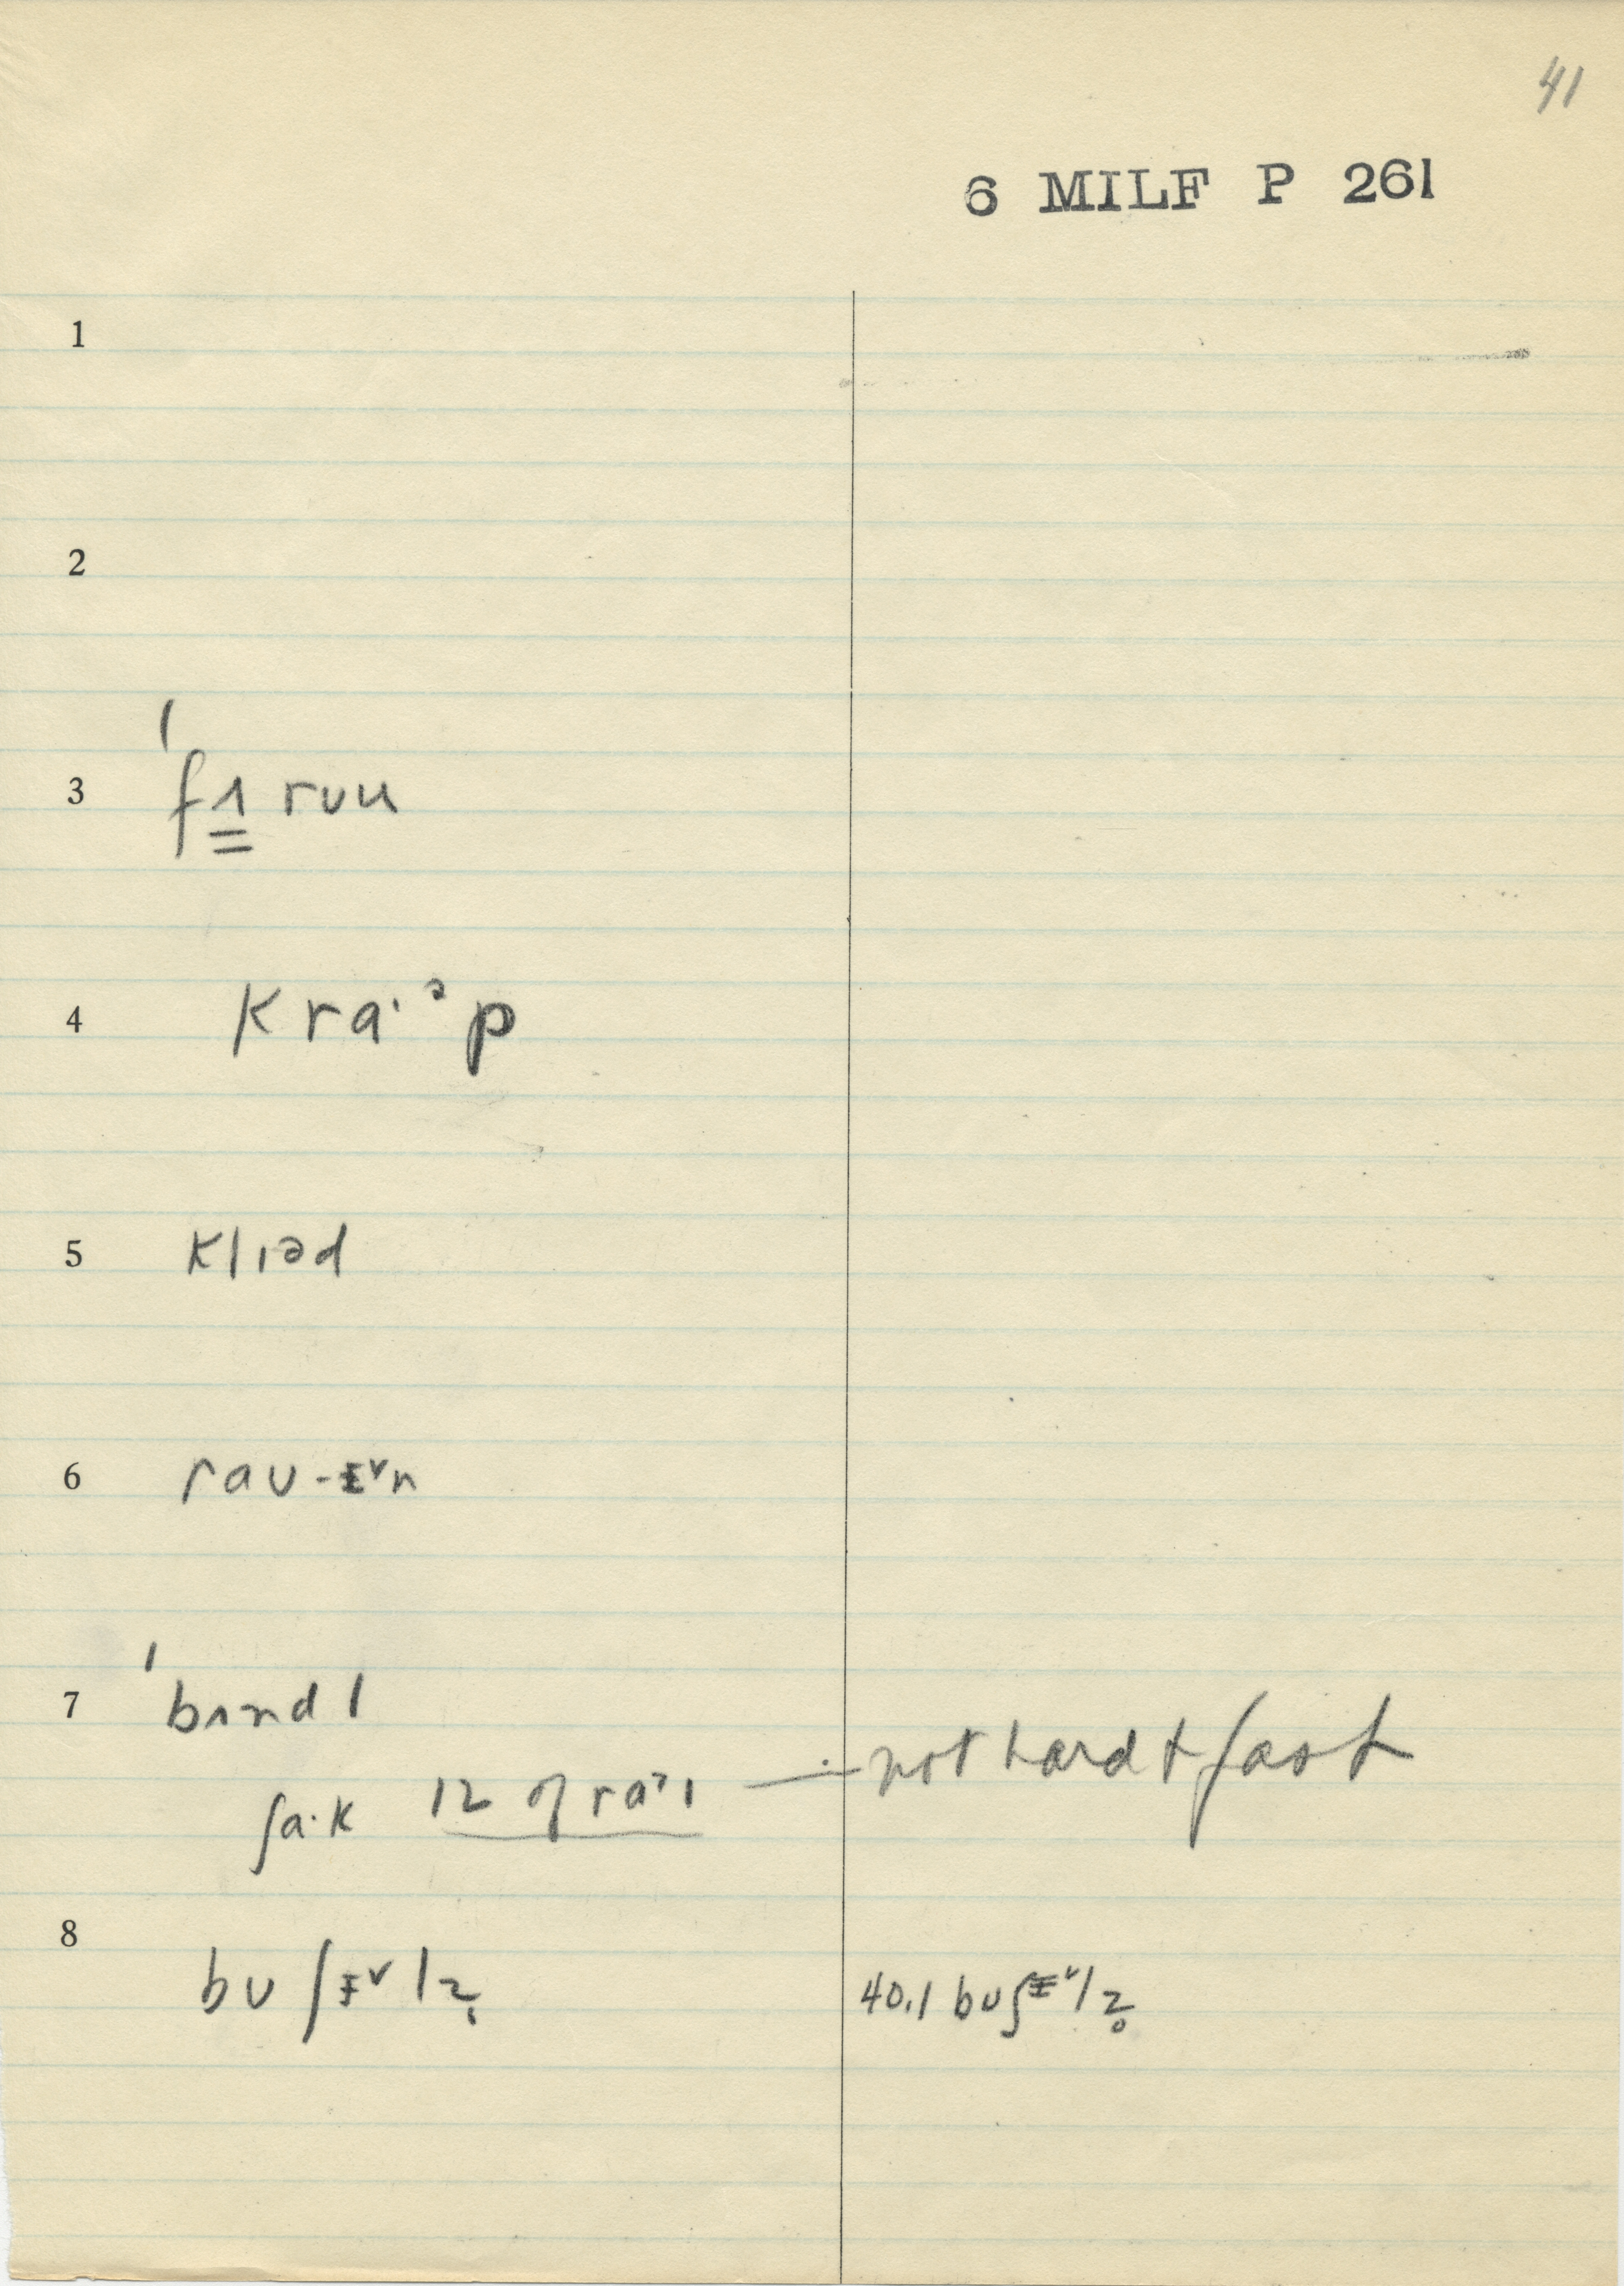 41
6 MILF P 261
1
2
3 ˈfɪ̳ rou
4 kra·ᵊp
5 klɪəd
6 rau-ɪ˅n
7 ˈbʌndl
ʃa·k 12 of raɪ — not hard + fast
8 buʃɪ˅lz̥ 40.1 buʃɪ˅lz̥